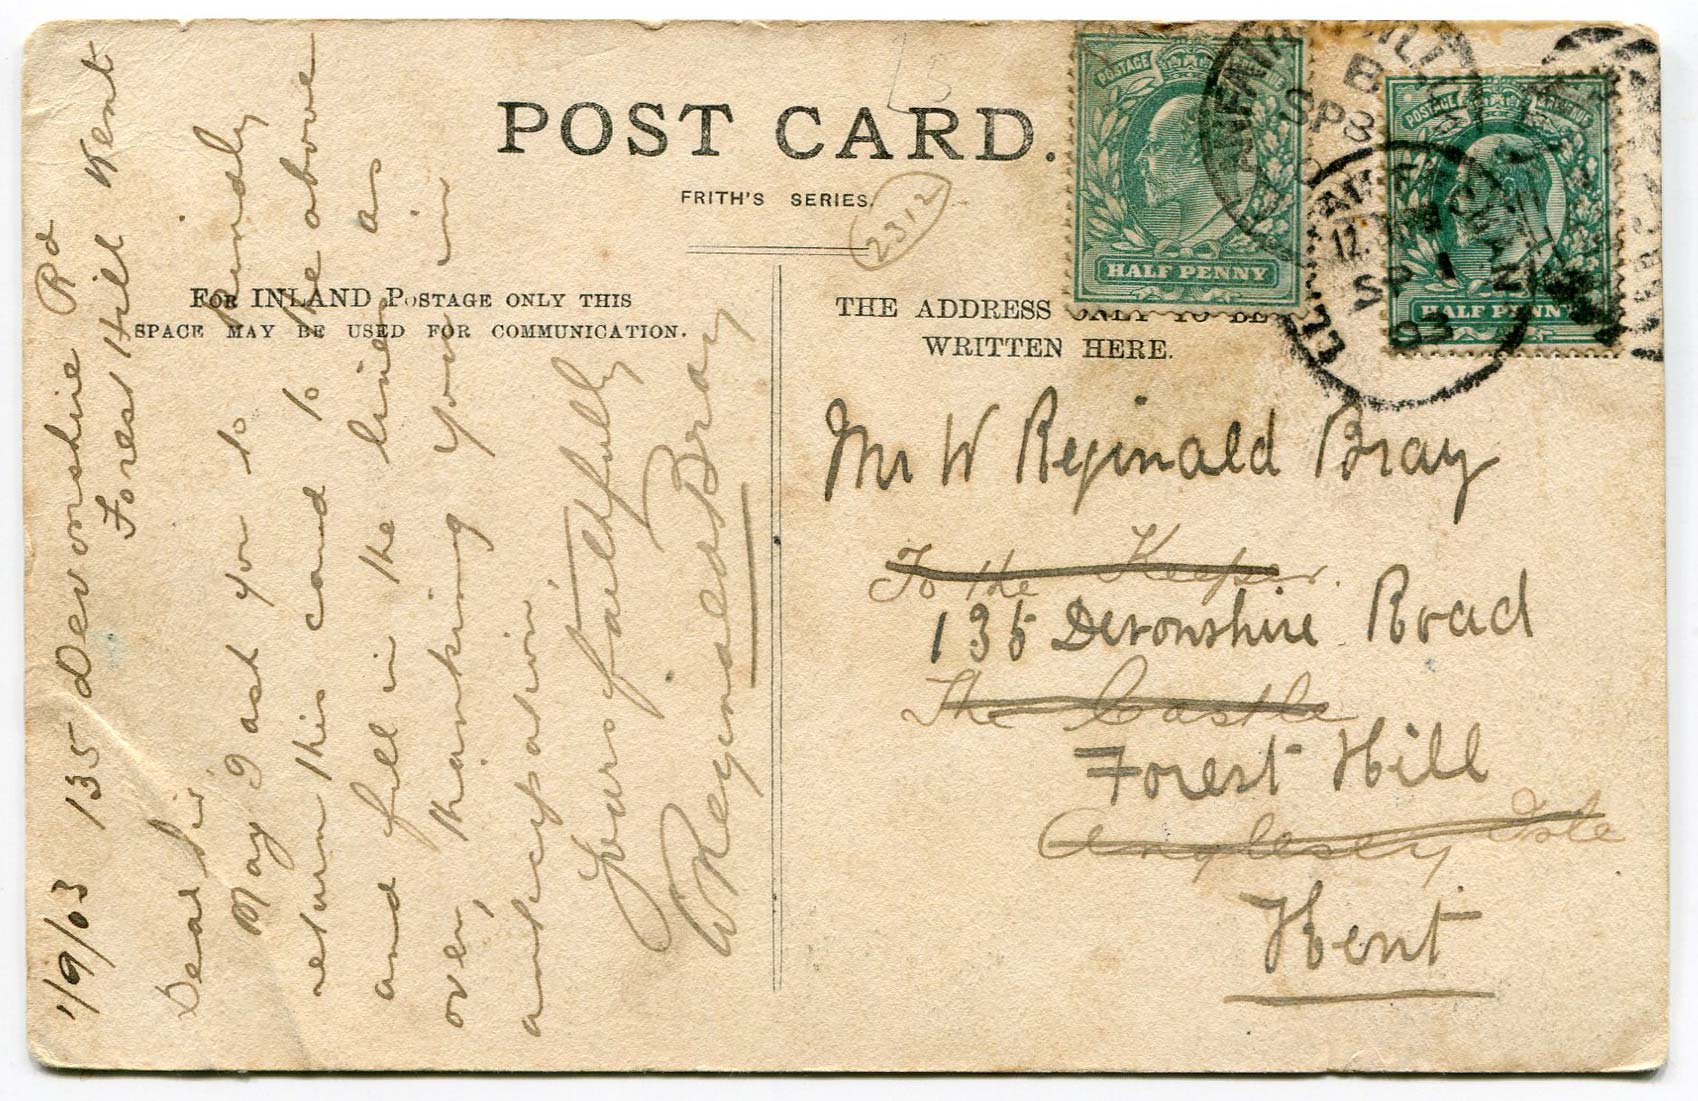 POST CARD.
FRITH'S SERIES.
2312
FOR INLAND POSTAGE ONLY THIS
SPACE MAY BE USED FOR COMMUNICATION.
THE ADDRESS ONLY TO BE
WRITTEN HERE.
POSTAGE
HALF PENNY
POSTAGE REVENUE
HALF PENNY
B
SP 8
SP 1
03
1/9/03 135 Devonshire Rd
Forest Hill Kent
Dear Sir
May I ask you to kindly
return this card to the above
and fill in the lines as
over, thanking you in
anticipation
Yours faithfully
W Reginald Bray
Mr W Reginald Bray
To the Keeper.
135 Devonshire Road
The Castle
Forest Hill
Anglesey Isle
Kent